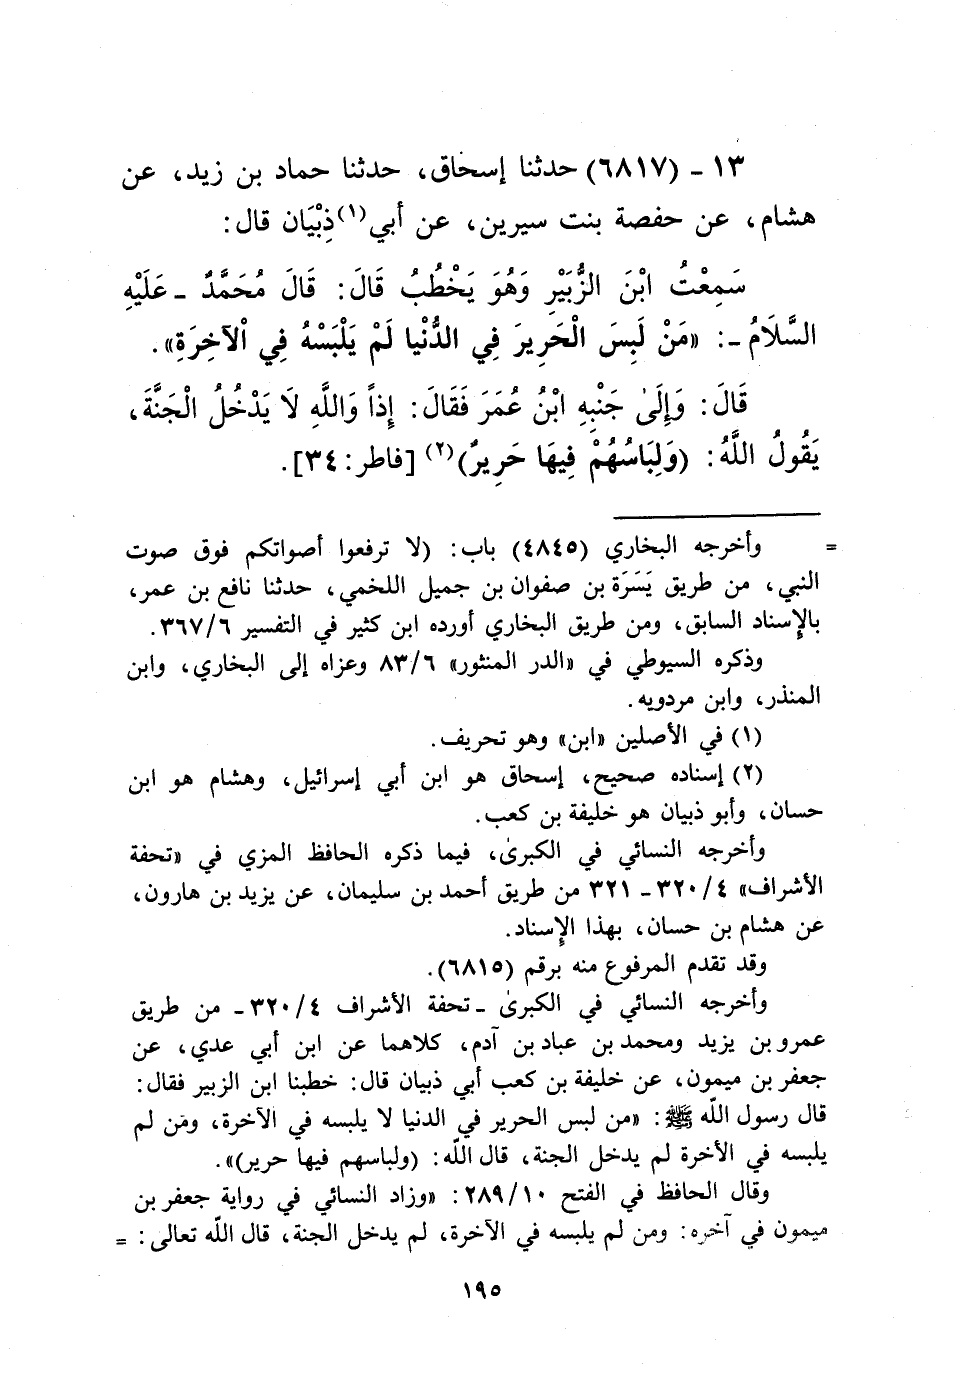 ١٣ - (٦٨١٧) حدثنا إسحاق، حدثنا حماد بن زيد، عن
هشام، عن حفصة بنت سيرين، عن أبي(١) ذِبْيَان قال:
سَمِعْتُ ابْنَ الزُّبَيْرِ وَهُوَ يَخْطُبُ قَالَ: قَالَ مُحَمَّدٌ - عَلَيْهِ
السَّلَامُ -: «مَنْ لَبِسَ الْحَرِيرَ فِي الدُّنْيَا لَمْ يَلْبَسْهُ فِي الْآخِرَةِ».
قَالَ: وَإِلَىٰ جَنْبِهِ ابْنُ عُمَرَ فَقَالَ: إِذاً وَاللَّهِ لَا يَدْخُلُ الْجَنَّةَ،
يَقُولُ اللَّهُ: (وَلِبَاسُهُمْ فِيهَا حَرِيرٌ)(٢) [فاطر: ٣٤].
= وأخرجه البخاري (٤٨٤٥) باب: (لا ترفعوا أصواتكم فوق صوت
النبي، من طريق يَسَرَة بن صفوان بن جميل اللخمي، حدثنا نافع بن عمر،
بالإسناد السابق، ومن طريق البخاري أورده ابن كثير في التفسير ٣٦٧/٦.
وذكره السيوطي في «الدر المنثور» ٨٣/٦ وعزاه إلى البخاري، وابن
المنذر، وابن مردويه.
(١) في الأصلين «ابن» وهو تحريف.
(٢) إسناده صحيح، إسحاق هو ابن أبي إسرائيل، وهشام هو ابن
حسان، وأبو ذبيان هو خليفة بن كعب.
وأخرجه النسائي في الكبرىٰ، فيما ذكره الحافظ المزي في «تحفة
الأشراف» ٣٢٠/٤ - ٣٢١ من طريق أحمد بن سليمان، عن يزيد بن هارون،
عن هشام بن حسان، بهذا الإسناد.
وقد تقدم المرفوع منه برقم (٦٨١٥).
وأخرجه النسائي في الكبرىٰ - تحفة الأشراف ٣٢٠/٤ - من طريق
عمرو بن يزيد ومحمد بن عباد بن آدم، كلاهما عن ابن أبي عدي، عن
جعفر بن ميمون، عن خليفة بن كعب أبي ذبيان قال: خطبنا ابن الزبير فقال:
قال رسول اللّه ﷺ: «من لبس الحرير في الدنيا لا يلبسه في الآخرة، ومَن لم
يلبسه في الأخرة لم يدخل الجنة، قال اللّه: (ولباسهم فيها حرير)».
وقال الحافظ في الفتح ٢٨٩/١٠: «وزاد النسائي في رواية جعفر بن
ميمون في آخره: ومن لم يلبسه في الآخرة، لم يدخل الجنة، قال اللّه تعالى: =
١٩٥